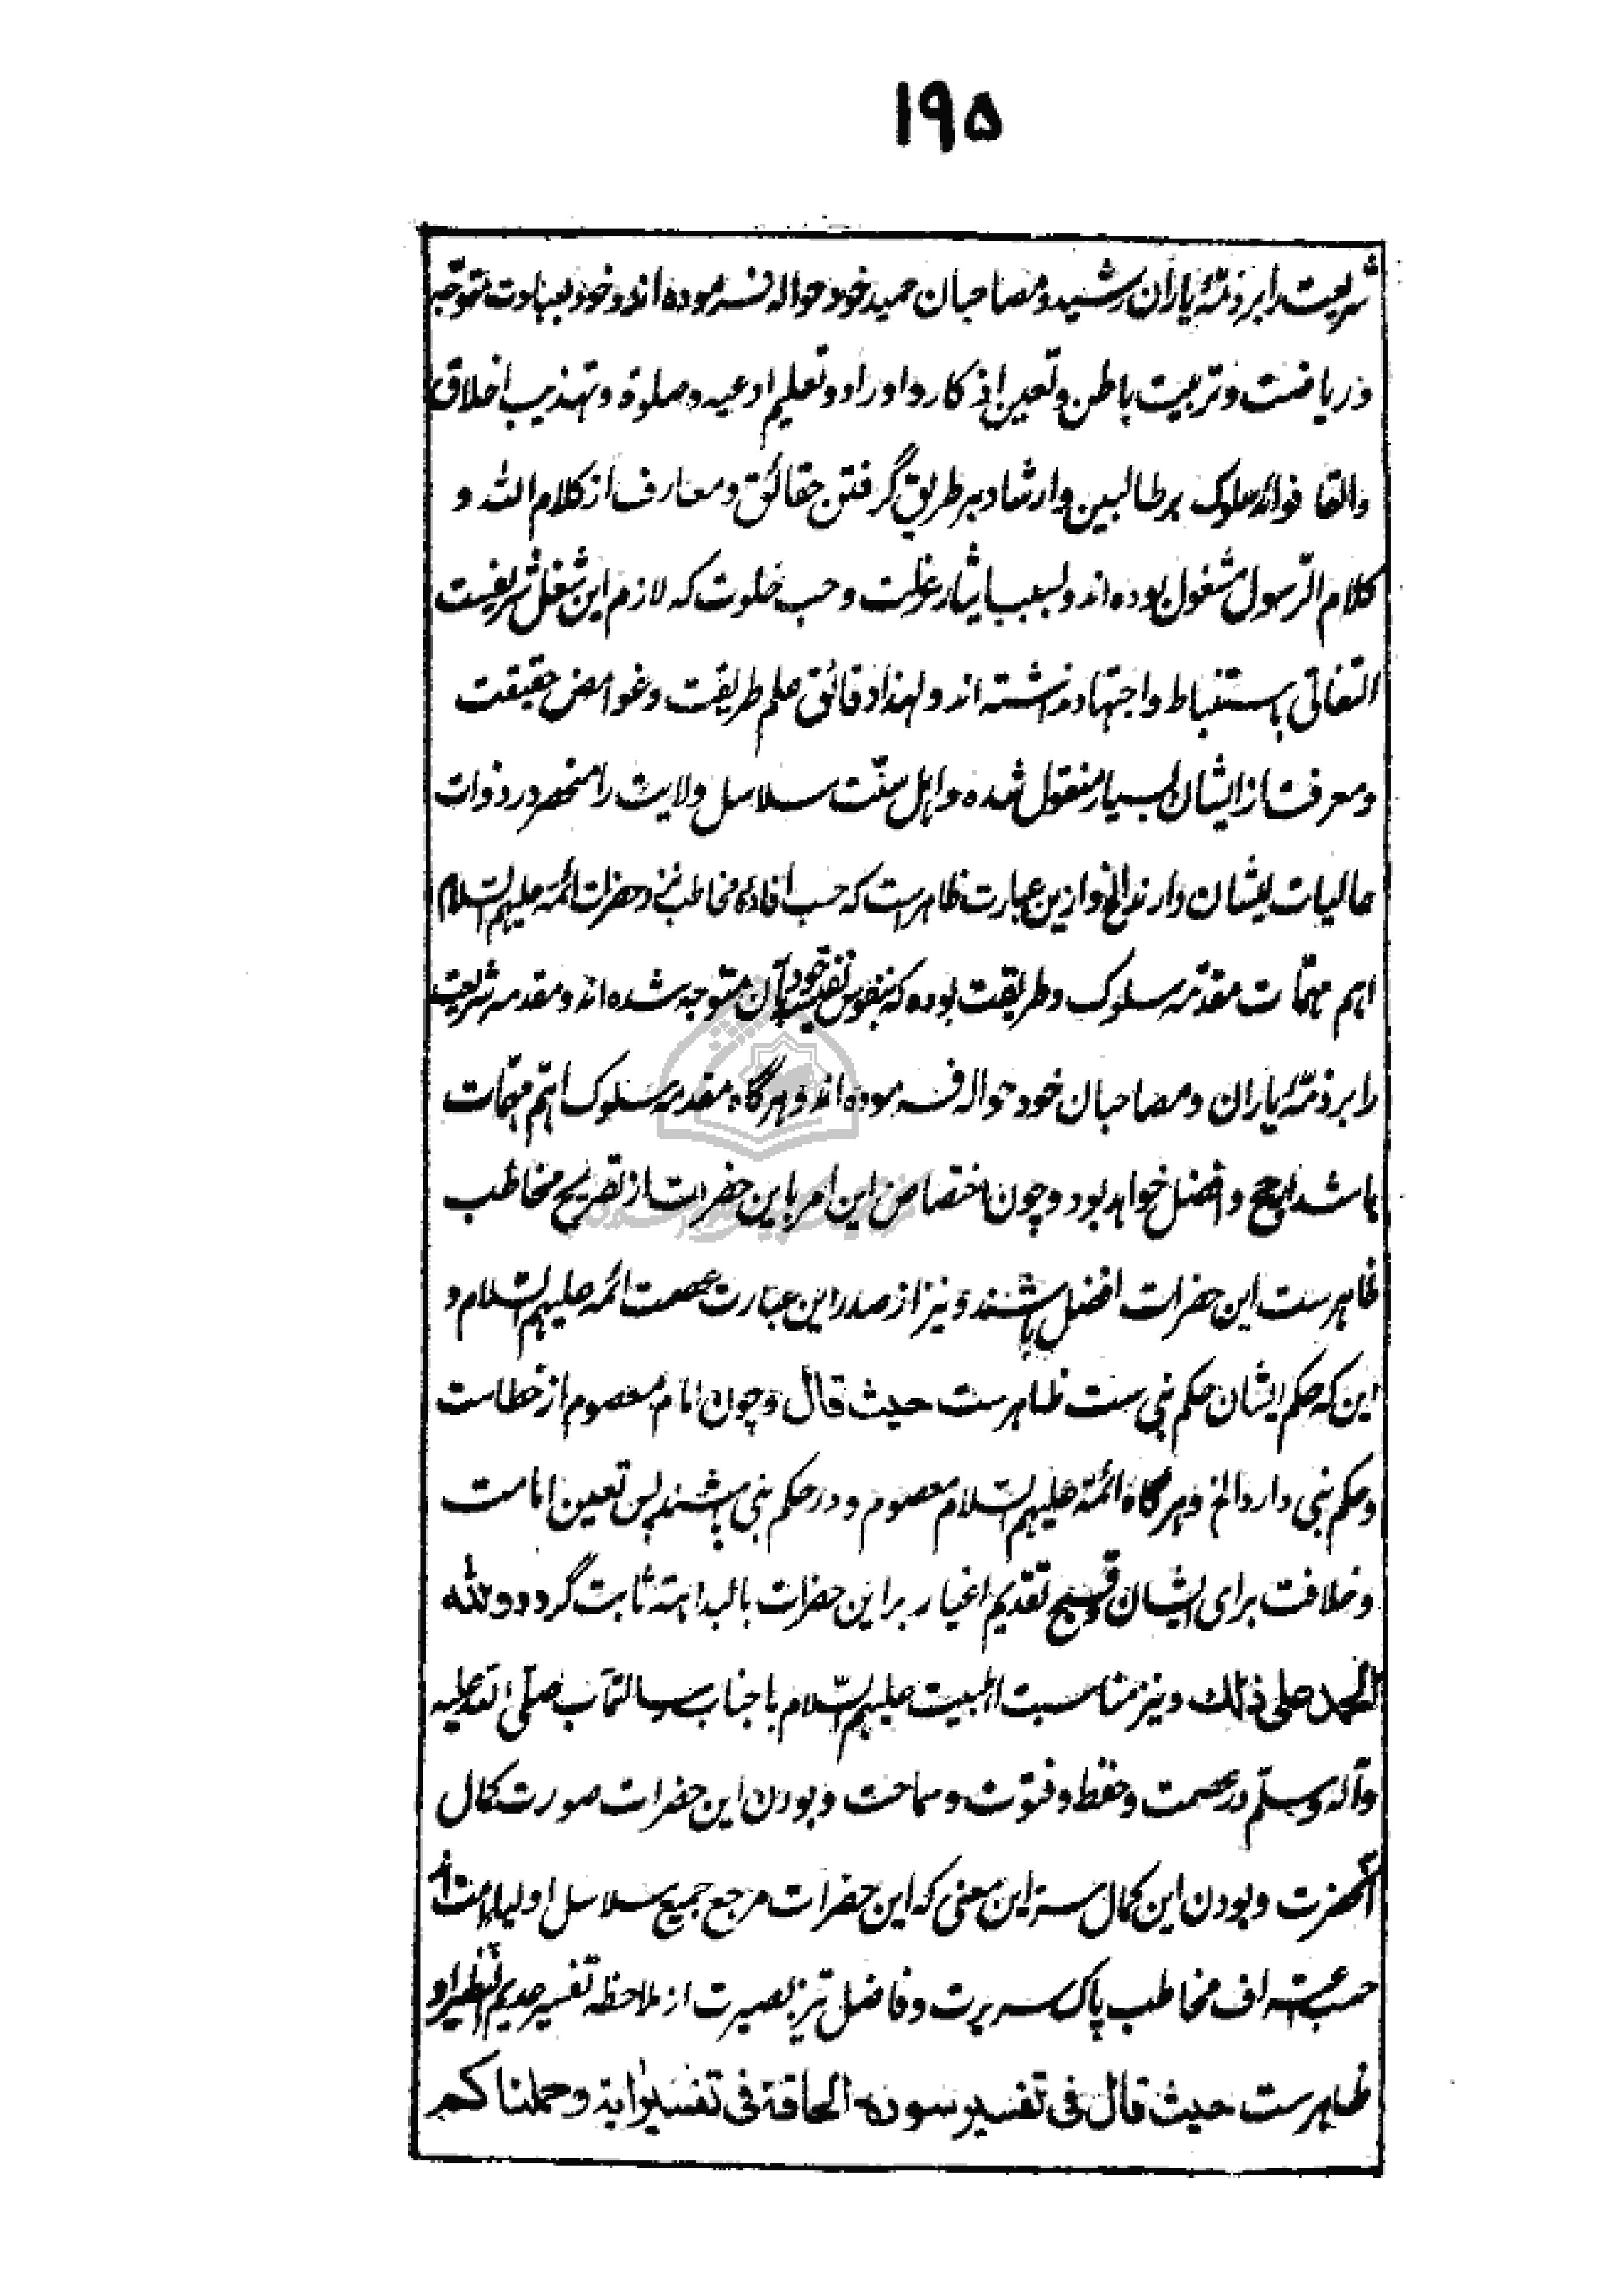 ۱۹۵
شریعت را بر ذمّهٔ یاران رشید و مصاحبان حمید خود حواله فرموده اند و خود بعبادت توجّه
و ریاضت و تربیت باطن و تعین اذکار و اوراد و تعلیم ادعیه و صلوة و تهذیب اخلاق
والقا فوائد سلوک بر طالبین و ارشاد بر طریق گرفتن حقائق و معارف از کلام الله و
کلام الرّسول مشغول بوده اند و بسبب ایثار عزلت و حب خلوت که لازم این شغل شریفست
التفاتی باستنباط و اجتهاد نداشته اند و لهذا دقائق علم طریقت و غوامض حقیقت
و معرفت از ایشان بسیار منقول شده و اهل سنّت سلاسل ولایت را منحصر در ذوات
عالیات ایشان دارند الخ و ازین عبارت ظاهرست که حسب افادهٔ مخاطب نزد حضرات ائمّه علیهم السّلام
اهم مهمّات مقدّمه سلوک و طریقت بوده که بنفوس نفیسه خود بآن متوجه شده اند و مقدمه شریعت
را بر ذمّهٔ یاران و مصاحبان خود حواله فرموده اند و هر گاه مقدمه سلوک اهمّ مهمّات
باشد ارجح و افضل خواهد بود و چون اختصاص این امر باین حضرات از تصریح مخاطب
ظاهرست این حضرات افضل باشند و نیز از صدر این عبارت عصمت ائمه علیهم السّلام و
این که حکم ایشان حکم نبی ست ظاهرست حیث قال و چون امام معصوم از خطاست
و حکم نبی دارد الخ و هر گاه ائمّة علیهم السّلام معصوم و در حکم نبی باشند پس تعین امامت
و خلافت برای ایشان و قبح تقدیم اغیار بر این حضرات بالبداهة ثابت گردد و لله
الحمد علی ذلک و نیز مناسبت اهلبیت علیهم السّلام با جناب رسالتمآب صلّی الله علیه
و آله و سلّم در عصمت و حفظ و فتوّت و سماحت و بودن این حضرات صورت کمال
آنحضرت و بودن این کمال سر این معنی که این حضرات مرجع جمیع سلاسل اولیاء امت اند
حسب اعتراف مخاطب پاک سریرت و فاضل تیز بصیرت از ملاحظه تفسیر عدیم النّظیر او
ظاهرست حیث قال فی تفسیر سوره الحاقة فی تفسیر ایة و حملناکم